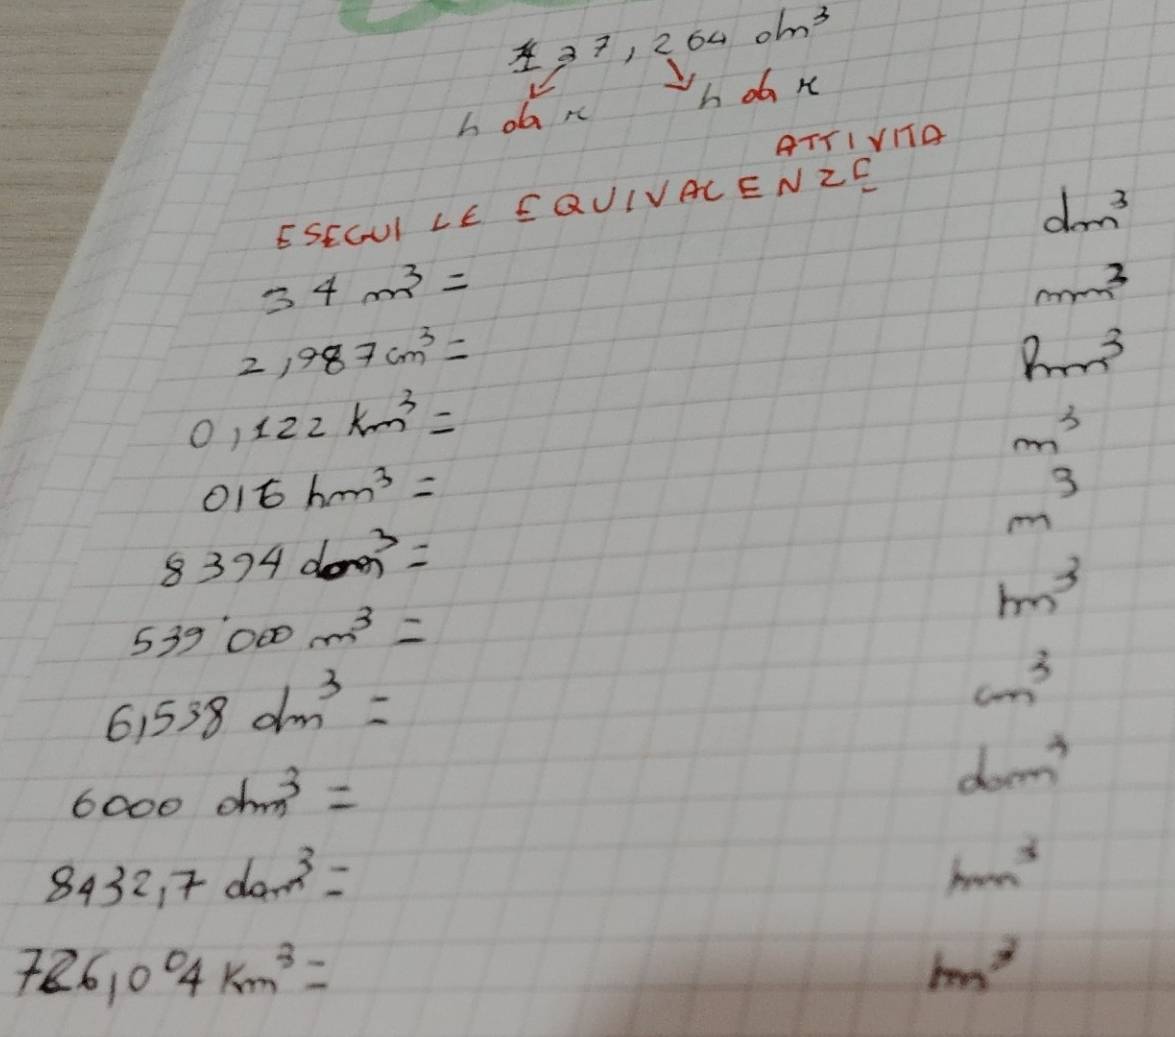 137,264 dm³
h da u h da u
ATTIVITÀ
ESEGUI LE EQUIVALENZE
34 m³ = dm³
2,987 cm³ = mm³
0,122 km³ = hm³
016 hm³ = m³
8394 dam³ = m³
539'000 m³ = hm³
6,538 dm³ = cm³
6000 dm³ = dam³
8432,7 dam³ = hm³
726,004 Km³ = hm³